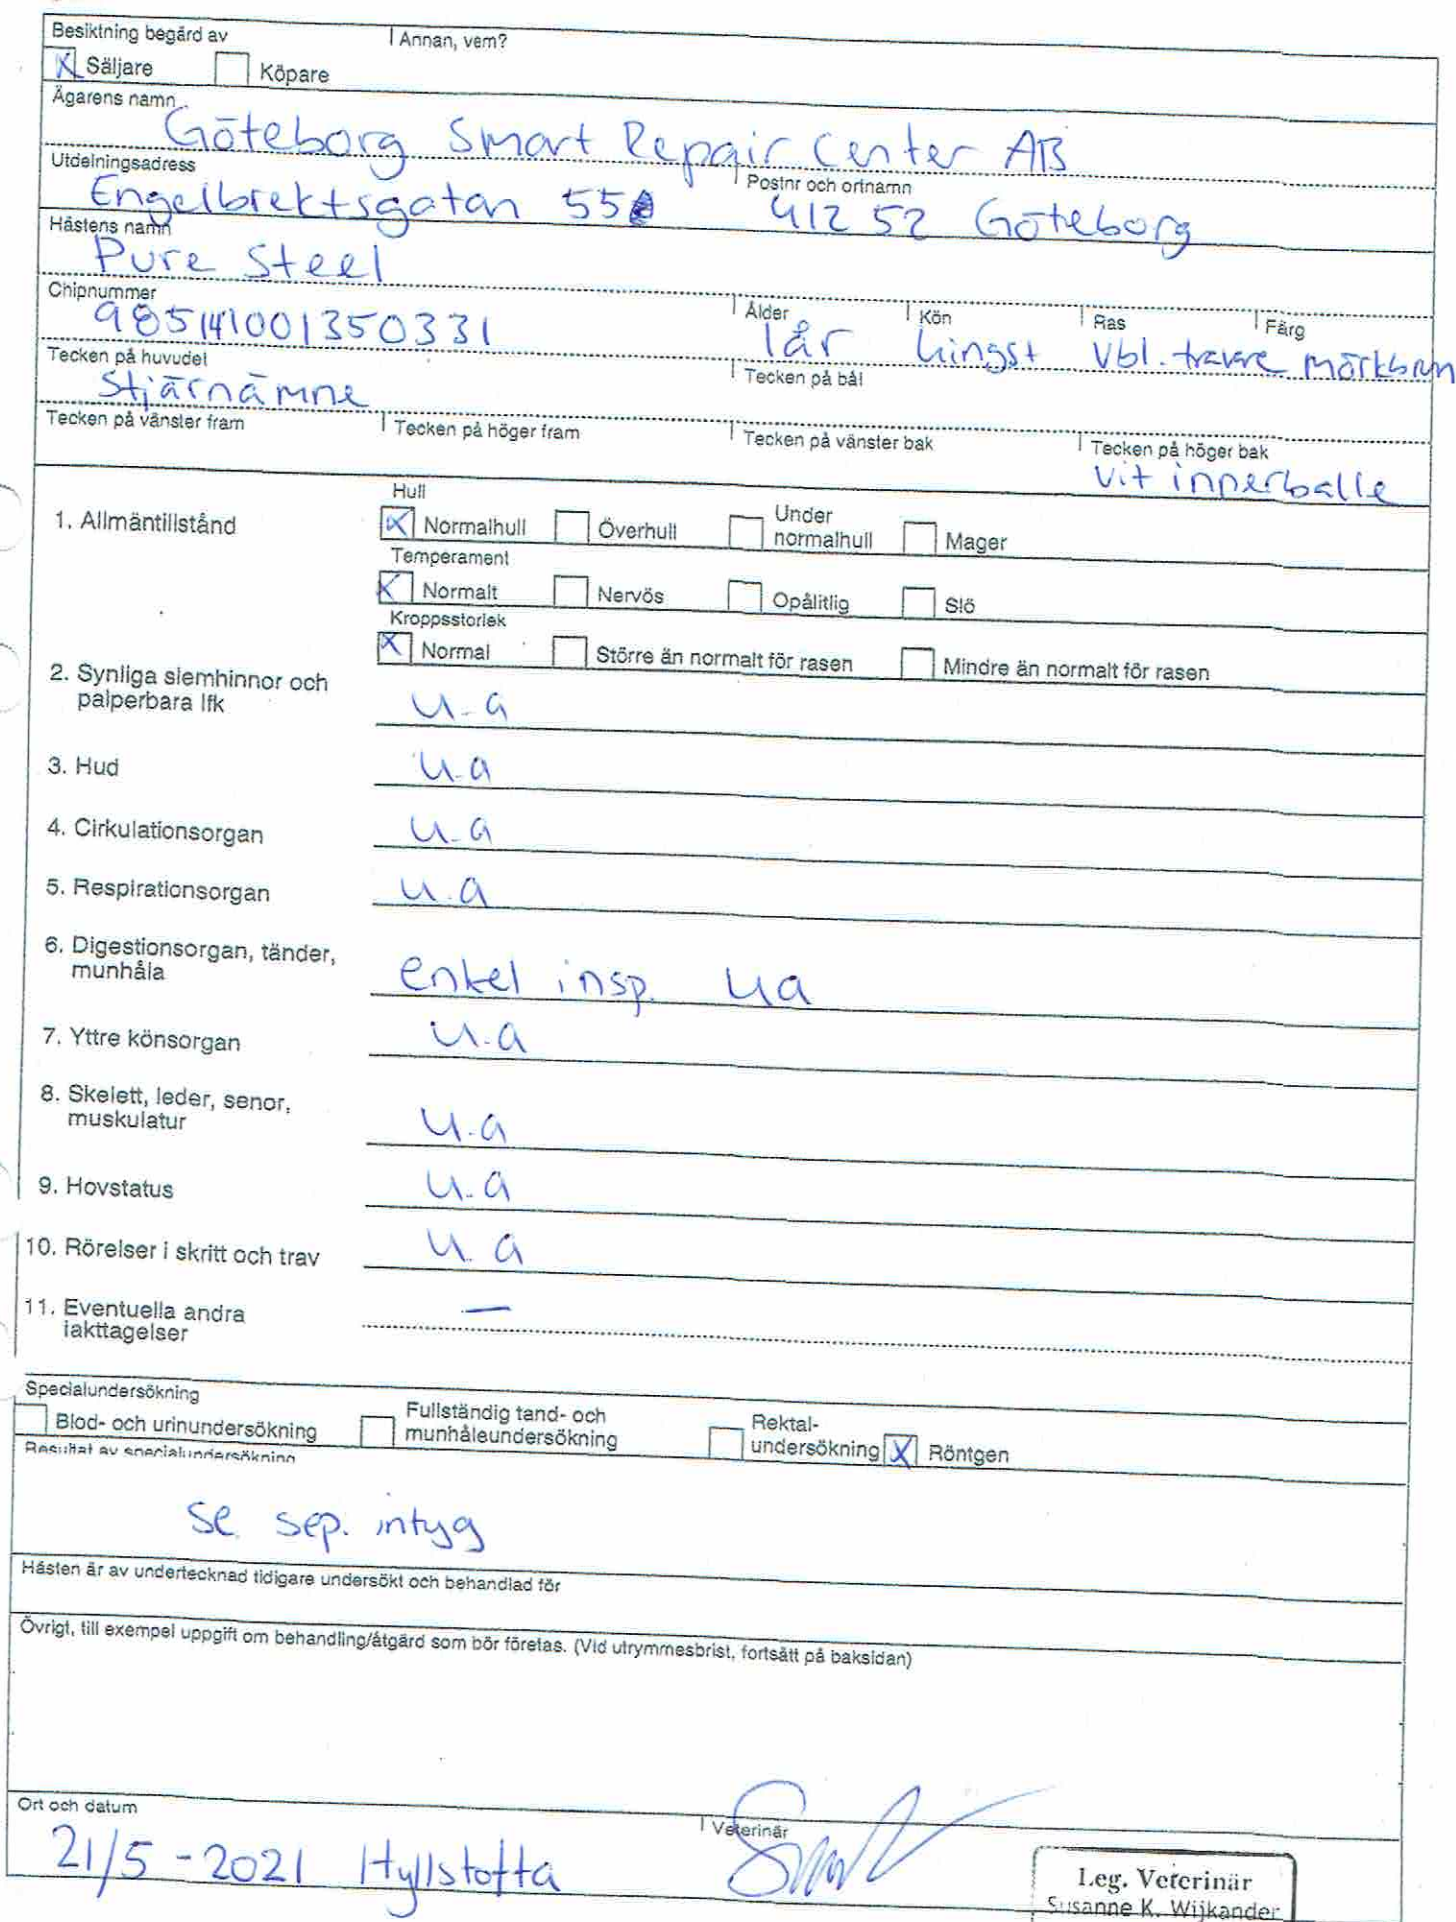 Besiktning begärd av Annan, vem?
X Säljare Köpare
Ägarens namn
Göteborg Smart Repair Center AB
Utdelningsadress Postnr och ortnamn
Engelbrektsgatan 55 412 52 Göteborg
Hästens namn
Pure Steel
Chipnummer Ålder Kön Ras Färg
985141001350331 1 år hingst Vbl. travare mörkbrun
Tecken på huvudet Tecken på bål
Stjärnämne
Tecken på vänster fram Tecken på höger fram Tecken på vänster bak Tecken på höger bak
vit innerballe
Hull
1. Allmäntillstånd X Normalhull Överhull Under normalhull Mager
Temperament
X Normalt Nervös Opålitlig Slö
Kroppsstorlek
X Normal Större än normalt för rasen Mindre än normalt för rasen
2. Synliga slemhinnor och
palperbara lfk u.a
3. Hud u.a
4. Cirkulationsorgan u.a
5. Respirationsorgan u.a
6. Digestionsorgan, tänder,
munhåla enkel insp. ua
7. Yttre könsorgan u.a
8. Skelett, leder, senor,
muskulatur u.a
9. Hovstatus u.a
10. Rörelser i skritt och trav u.a
11. Eventuella andra —
iakttagelser
Specialundersökning
Blod- och urinundersökning Fullständig tand- och munhåleundersökning Rektal-undersökning X Röntgen
Resultat av specialundersökning
se sep. intyg
Hästen är av undertecknad tidigare undersökt och behandlad för
Övrigt, till exempel uppgift om behandling/åtgärd som bör företas. (Vid utrymmesbrist, fortsätt på baksidan)
Ort och datum Veterinär
21/5 - 2021 Hyllstofta
Leg. Veterinär
Susanne K. Wijkander